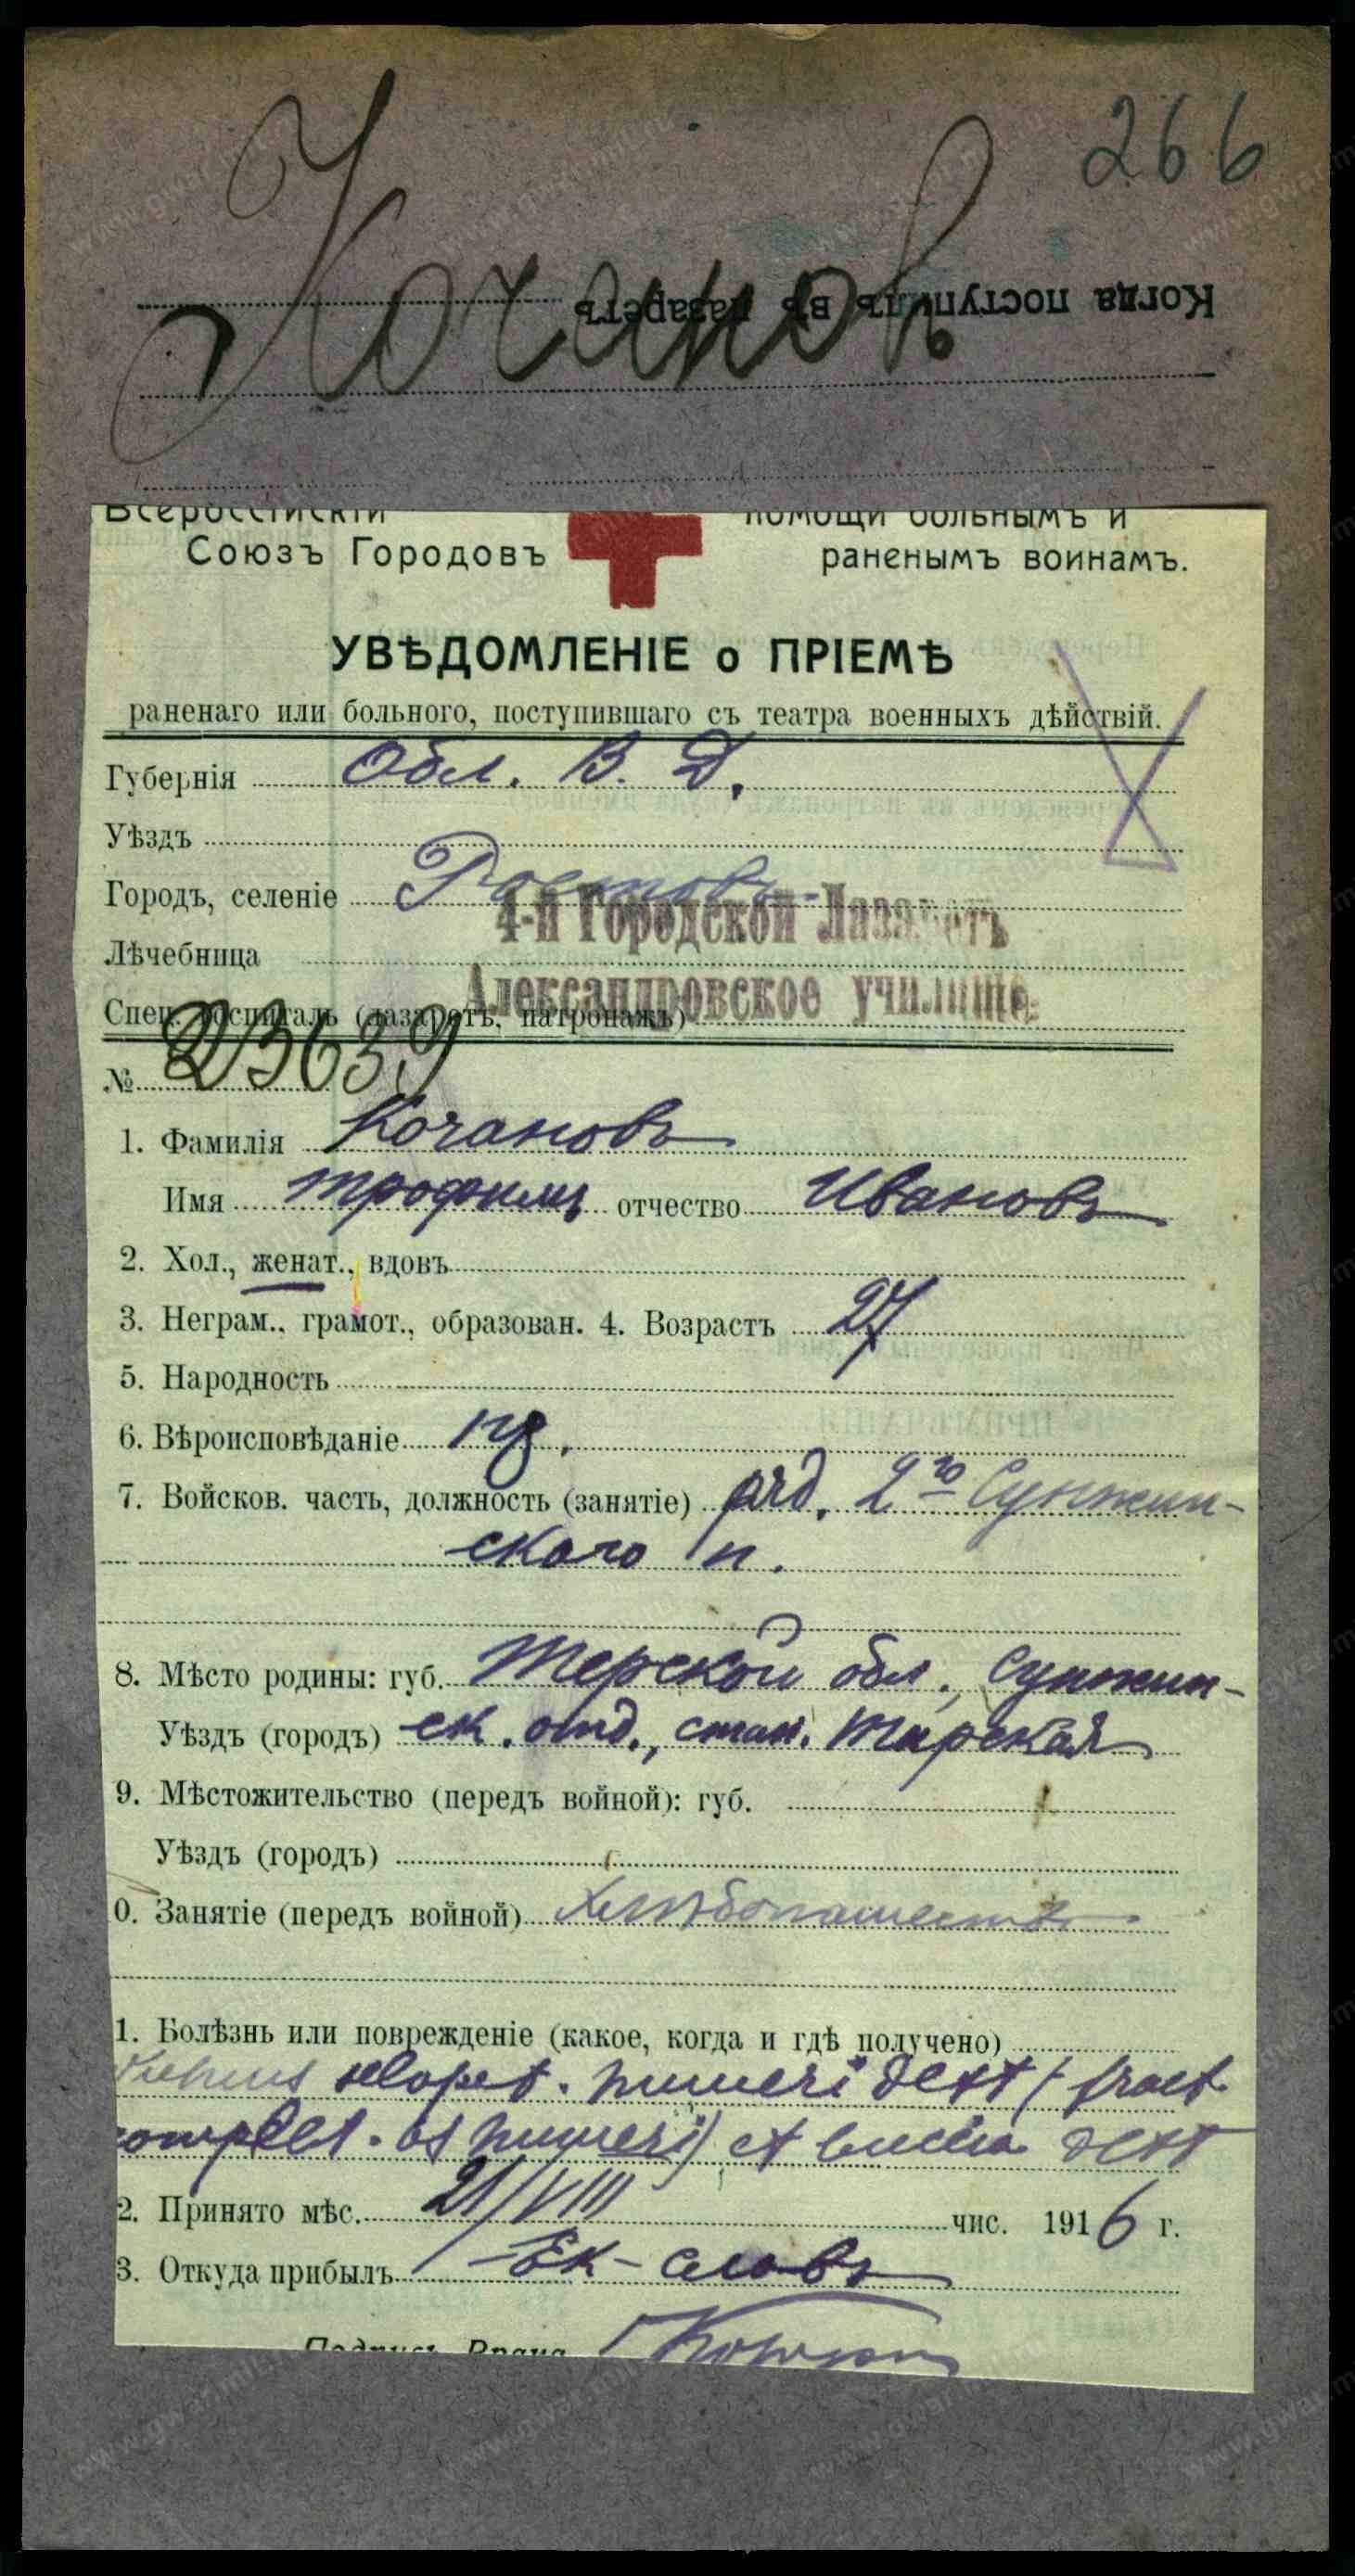 266
Кочановъ
Когда поступилъ въ лазаретъ
Всероссійскій помощи больнымъ и
Союзъ Городовъ раненымъ воинамъ.
УВѢДОМЛЕНІЕ о ПРІЕМѢ
раненаго или больного, поступившаго съ театра военныхъ дѣйствій.
Губернія Обл. В. Д.
Уѣздъ
Городъ, селеніе Ростовъ
4-й Городской Лазаретъ
Лѣчебница
Александровское училище.
Спец. госпиталь (лазаретъ, патронажъ)
№ 23639
1. Фамилія Кочановъ
Имя Трофимъ отчество Ивановъ
2. Хол., женат., вдовъ
3. Неграм., грамот., образован. 4. Возрастъ 27
5. Народность
6. Вѣроисповѣданіе
7. Войсков. часть, должность (занятіе) ряд. 2го Сунжин-
скаго п.
8. Мѣсто родины: губ. Терской обл., Сунжин-
Уѣздъ (городъ) ск. отд., стан. Тарская
9. Мѣстожительство (передъ войной): губ.
Уѣздъ (городъ)
0. Занятіе (передъ войной) Хлѣбопашество
1. Болѣзнь или поврежденіе (какое, когда и гдѣ получено)
Vulnus sclopet. humeri dext (fract.
complet. os humeri) et bucca dext
2. Принято мѣс. 21/VIII чис. 1916 г.
3. Откуда прибылъ Ек-славъ
Подпись Врача